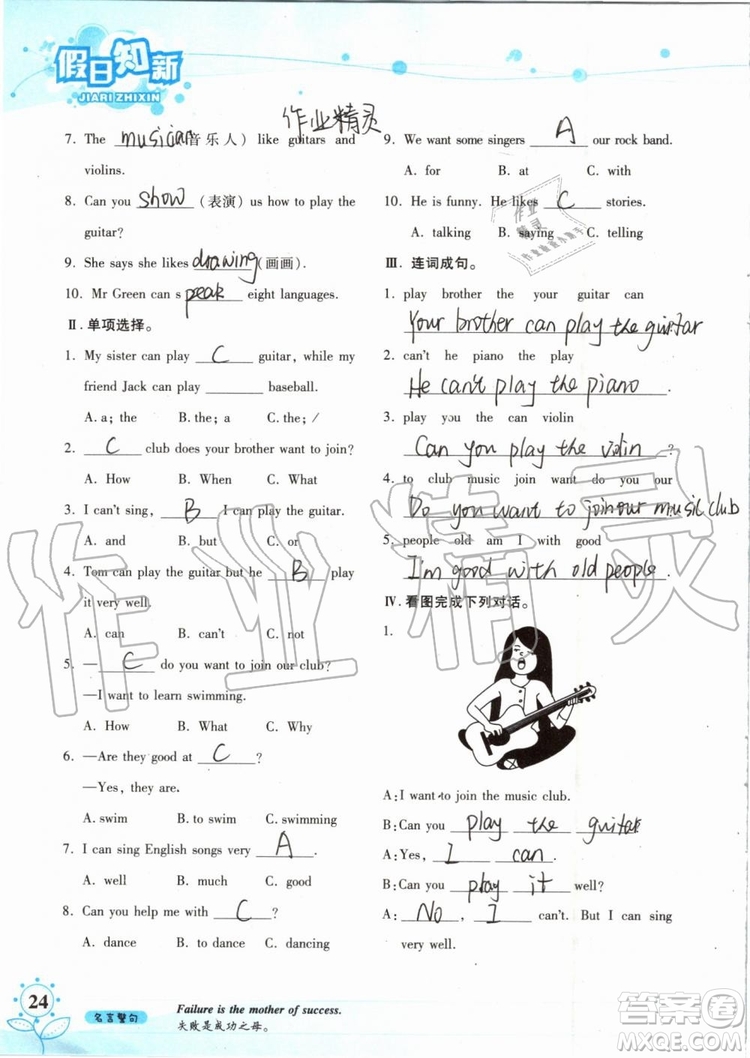 假日知新
JIARI ZHIXIN
作业精灵
7. The musician(音乐人) like guitars and
violins.
8. Can you show (表演) us how to play the
guitar?
9. She says she likes drawing(画画).
10. Mr Green can speak eight languages.
Ⅱ. 单项选择。
1. My sister can play C guitar, while my
friend Jack can play ________ baseball.
A. a; the B. the; a C. the; /
2. C club does your brother want to join?
A. How B. When C. What
3. I can't sing, B I can play the guitar.
A. and B. but C. or
4. Tom can play the guitar but he B play
it very well.
A. can B. can't C. not
5. — C do you want to join our club?
—I want to learn swimming.
A. How B. What C. Why
6. —Are they good at C ?
—Yes, they are.
A. swim B. to swim C. swimming
7. I can sing English songs very A .
A. well B. much C. good
8. Can you help me with C ?
A. dance B. to dance C. dancing
9. We want some singers A our rock band.
A. for B. at C. with
10. He is funny. He likes C stories.
A. talking B. saying C. telling
Ⅲ. 连词成句。
1. play brother the your guitar can
Your brother can play the guitar
2. can't he piano the play
He can't play the piano.
3. play you the can violin
Can you play the violin ?
4. to club music join want do you our
Do you want to join our music club
5. people old am I with good
I'm good with old people.
Ⅳ. 看图完成下列对话。
1.
A: I want to join the music club.
B: Can you play the guitar
A: Yes, I can.
B: Can you play it well?
A: No, I can't. But I can sing
very well.
作业精灵
24
名言警句
Failure is the mother of success.
失败是成功之母。
答案圈
MXQE.COM